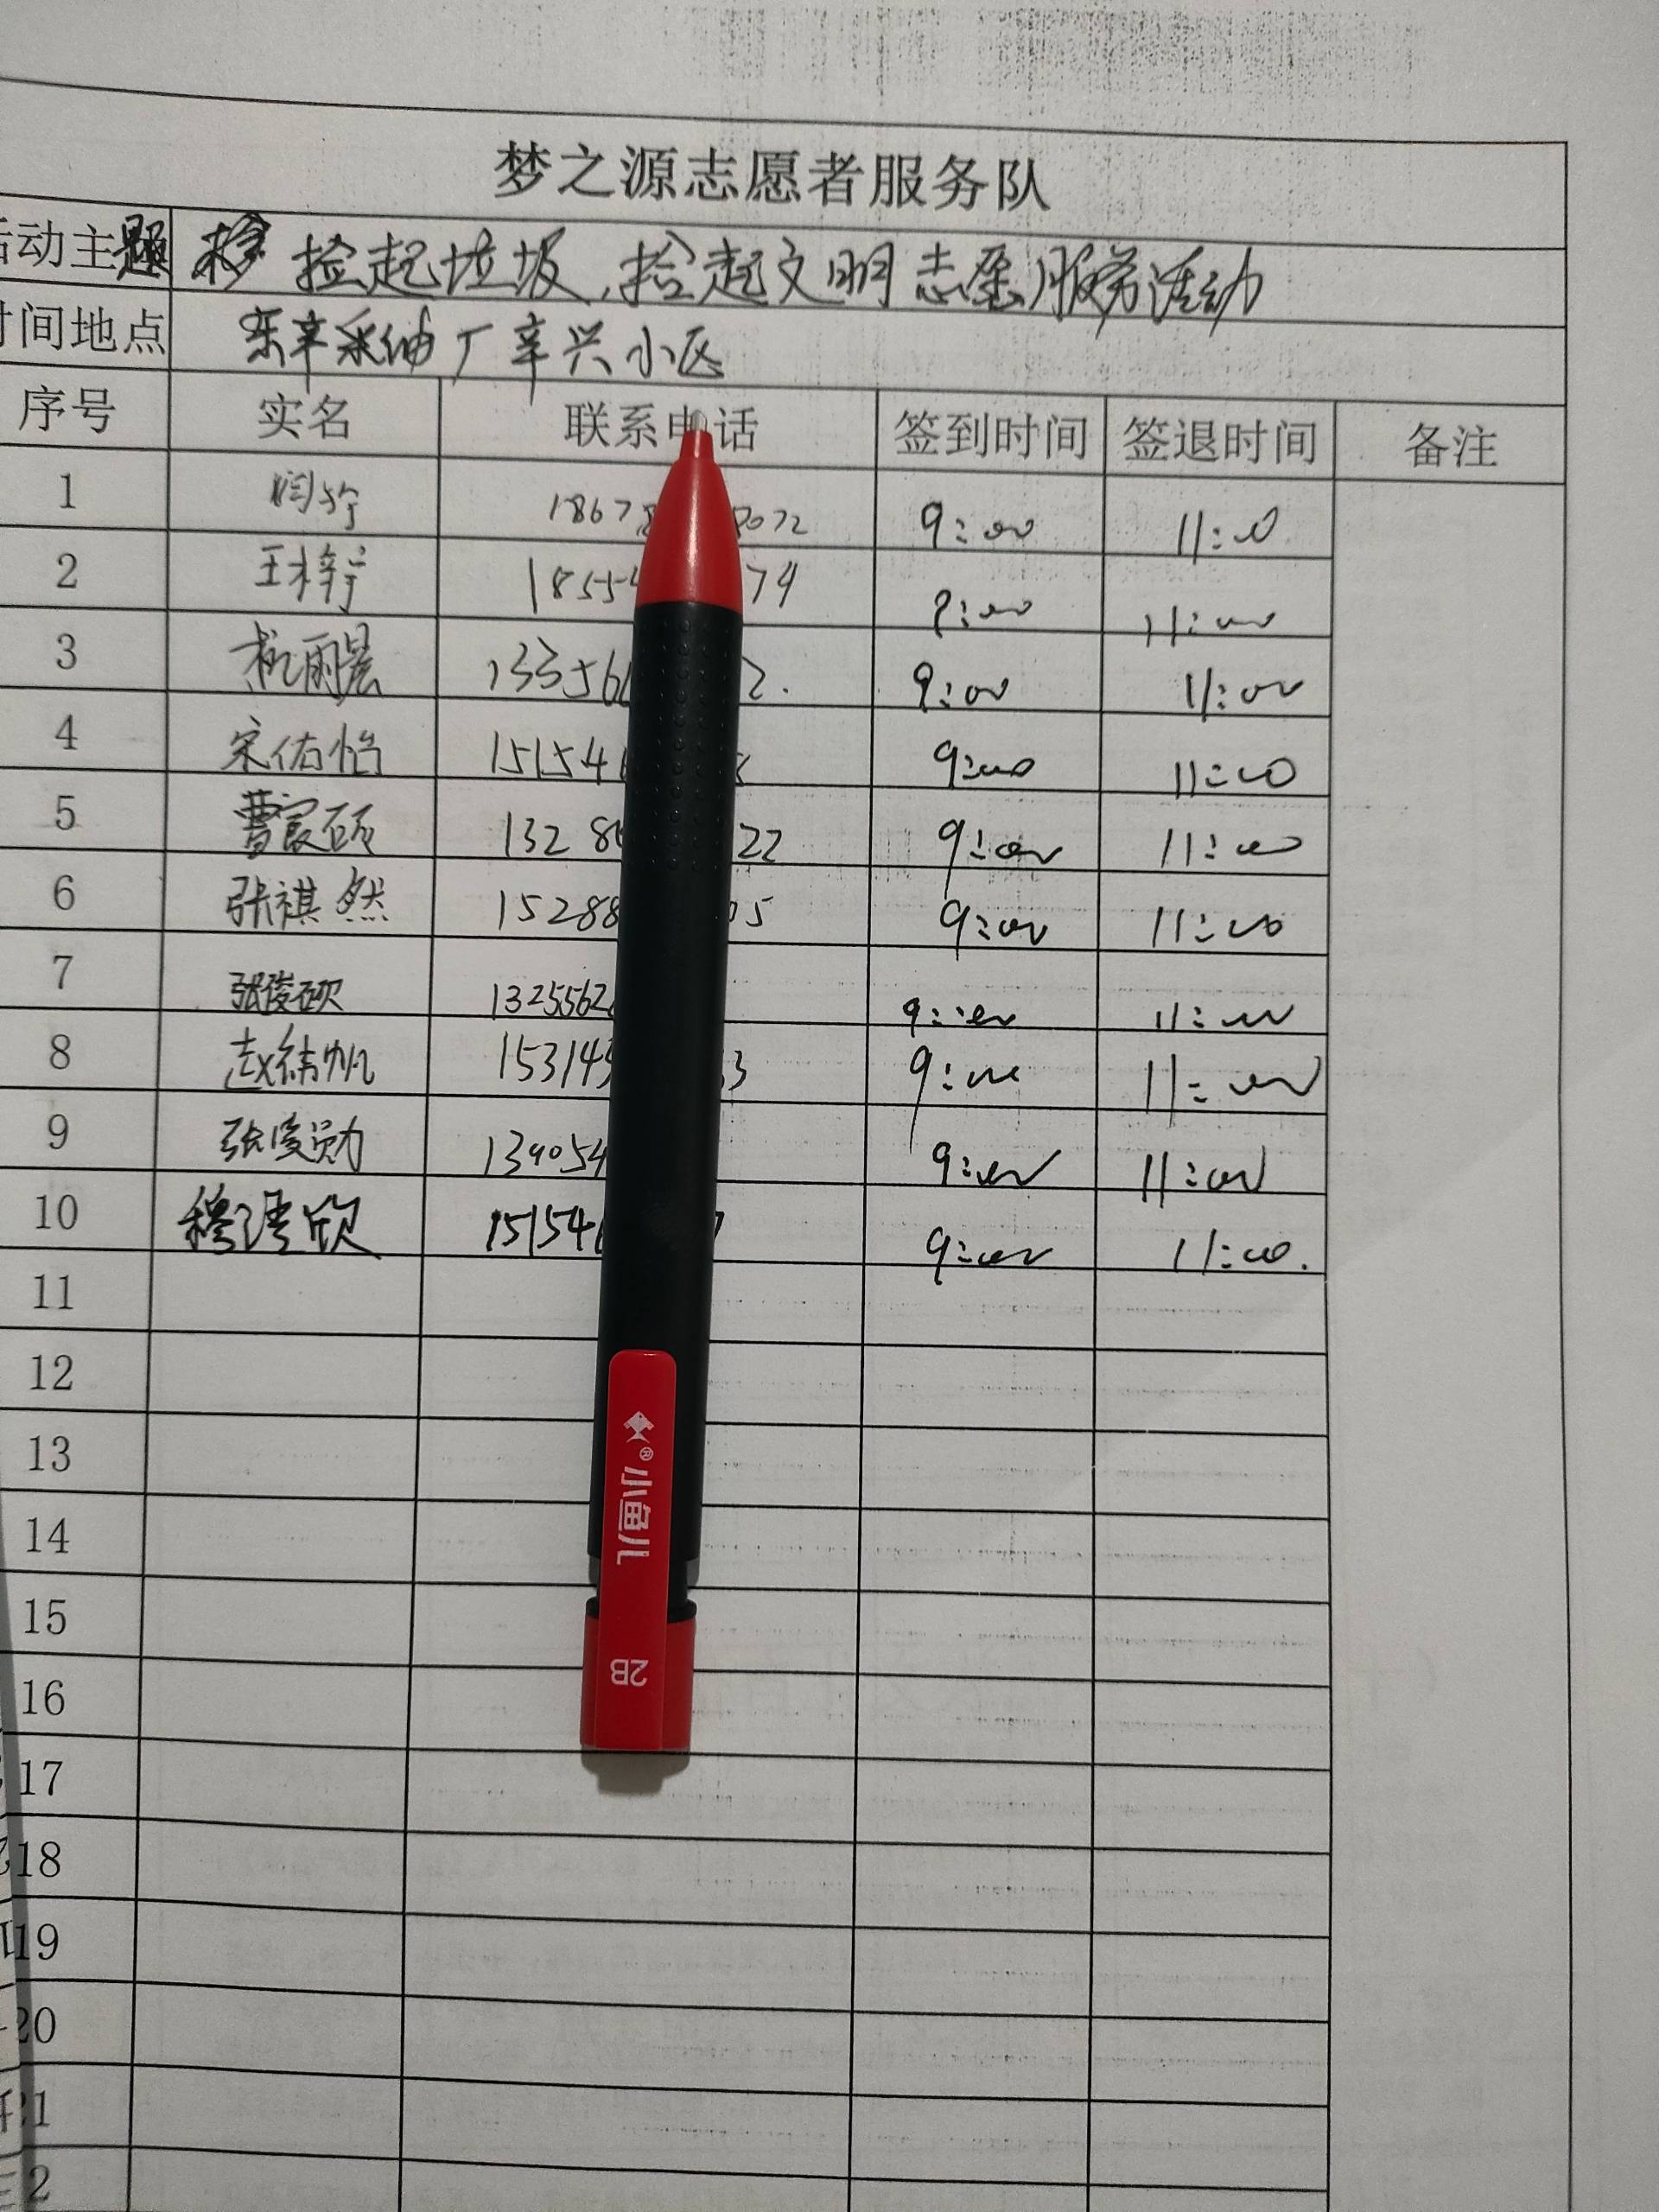 梦之源志愿者服务队
活动主题 捡起垃圾、拾起文明志愿服务活动
时间地点 东辛采油厂辛兴小区
序号 实名 联系电话 签到时间 签退时间 备注
1 闫宁 1867 072 9:00 11:00
2 王梓宁 1855 74 9:00 11:00
3 13356 2. 9:00 11:00
4 宋佑怡 15154 9:00 11:00
5 曹宸硕 1328 22 9:00 11:00
6 张祺然 15288 05 9:00 11:00
7 张俊砚 1325562 9:00 11:00
8 赵纬帆 15314 3 9:00 11:00
9 张俊勋 139054 9:00 11:00
10 穆清欣 15154 9:00 11:00.
11
12
13
14
15
16
17
18
19
20
21
2
小鱼儿
2B